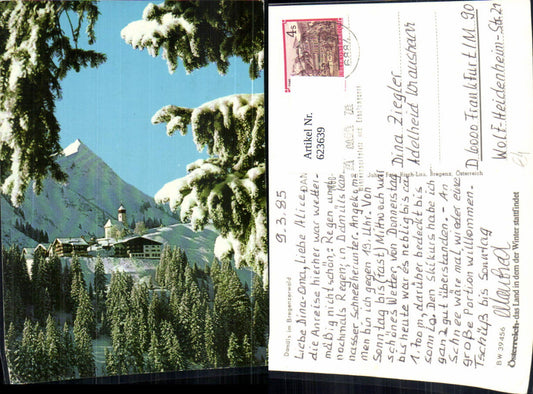 9.3.85
Liebe Dina-Oma, Liebe Alice.
die Anreise hierher war wetter-
mäßig nicht schön. Regen
nochmals Regen, in Damüls kam
nasser Schnee herunter. Angekom
men bin ich gegen 19. Uhr. Von
Sonntag bis (fast) Mittwoch war
schönes Wetter, von Donnerstag
bis heute war es neblig bis ca
1.700m, darüber bedeckt bis
sonnig. Den Skikurs habe ich
ganz gut überstanden. - An
Schnee wäre mal wieder eine
große Portion willkommen.
Tschüß bis Sonntag
Dina Ziegler
Adelheid
Wolf-Heidenheim-Str. 21
D 6000 Frankfurt/M. 90
4s
Artikel Nr.
623639
Bregenz, Österreich
Damüls im Bregenzerwald
BW 39456
Österreich, das Land in dem der Winter stattfindet